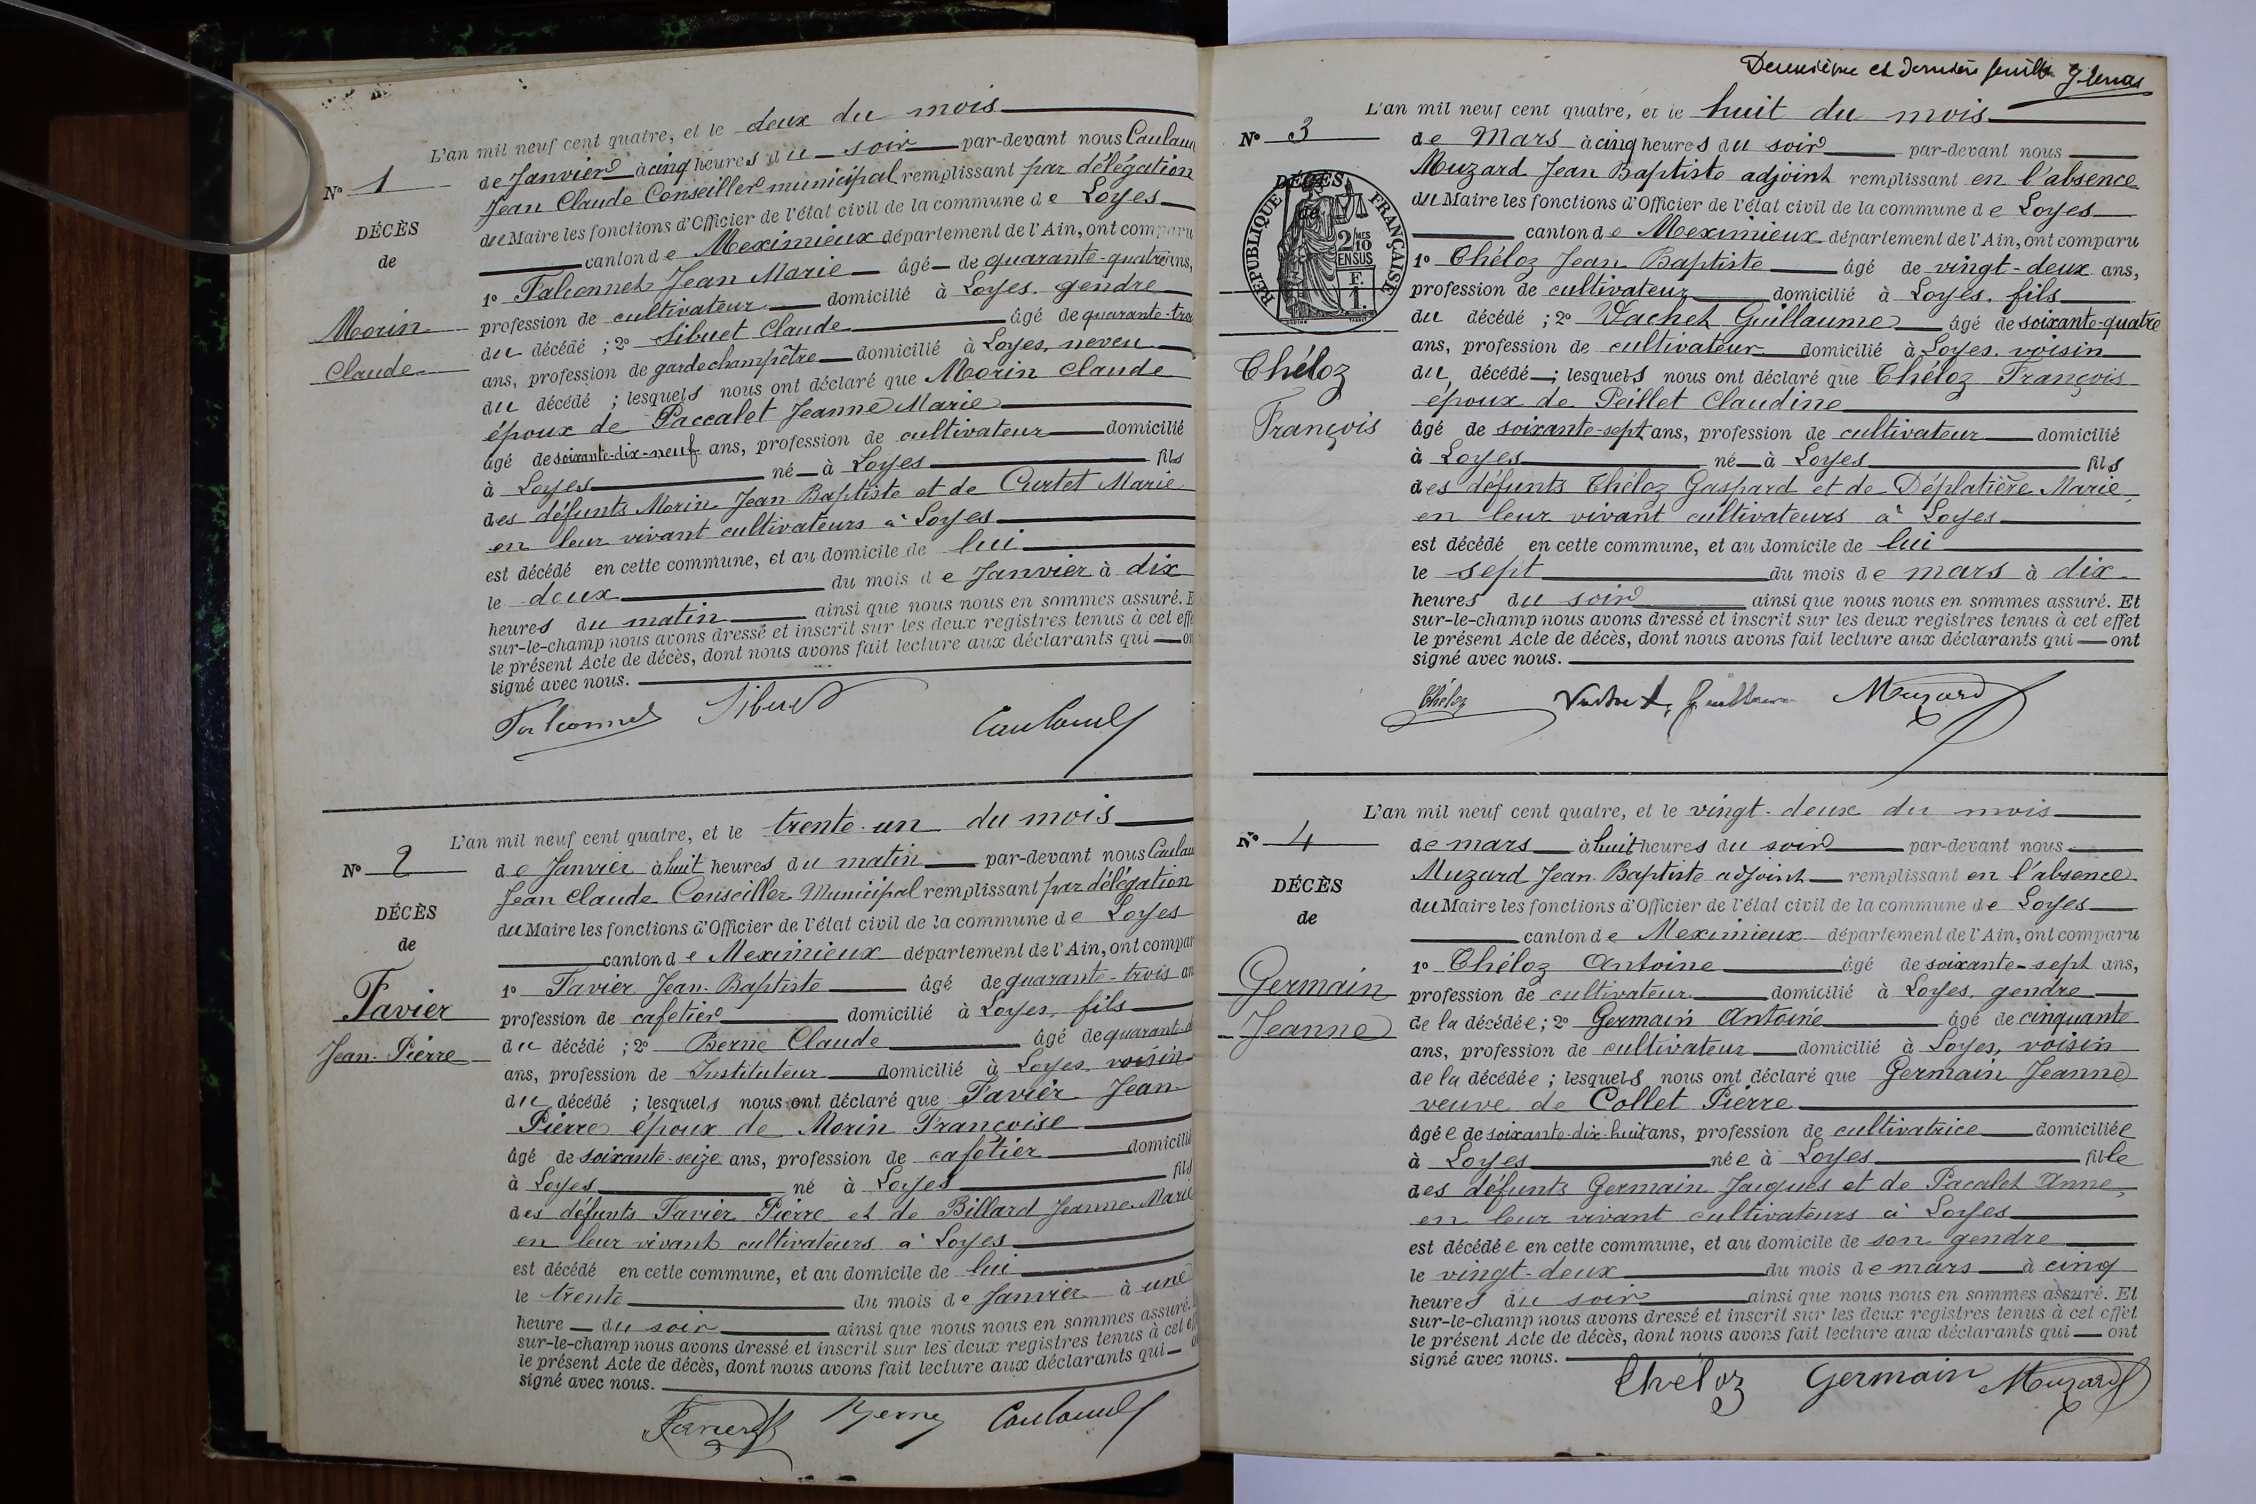 L'an mil neuf cent quatre, et le deux du mois
N° 1
de Janvier à cinq heures du soir par-devant nous
Jean Claude Conseiller municipal remplissant par délégation
DÉCÈS
du Maire les fonctions d'Officier de l'état civil de la commune de Loyes
de
canton de Meximieux département de l'Ain, ont comparu
1° Falconnet Jean Marie âgé de quarante-quatre ans,
Morin
profession de cultivateur domicilié à Loyes. gendre
du décédé ; 2° Sibuet Claude âgé de quarante-trois
Claude
ans, profession de garde champêtre domicilié à Loyes, neveu
du décédé ; lesquels nous ont déclaré que Morin Claude
époux de Paccalet Jeanne Marie
âgé de soixante-dix-neuf ans, profession de cultivateur domicilié
à Loyes né à Loyes fils
des défunts Morin Jean Baptiste et de Curtet Marie
en leur vivant cultivateurs à Loyes
est décédé en cette commune, et au domicile de lui
le deux du mois de Janvier à dix
heures du matin ainsi que nous nous en sommes assuré. E
sur-le-champ nous avons dressé et inscrit sur les deux registres tenus à cet effe
le présent Acte de décès, dont nous avons fait lecture aux déclarants qui on
signé avec nous.
Falconnet Sibuet
L'an mil neuf cent quatre, et le trente-un du mois
N° 2
de Janvier à huit heures du matin par-devant nous
Jean Claude Conseiller Municipal remplissant par délégation
DÉCÈS
du Maire les fonctions d'Officier de l'état civil de la commune de Loyes
de
canton de Meximieux département de l'Ain, ont compar
Favier
1° Favier Jean-Baptiste âgé de quarante-trois an
profession de cafetier domicilié à Loyes, fils
Jean-Pierre
du décédé ; 2° Berne Claude âgé de
ans, profession de Instituteur domicilié à Loyes, voisin
du décédé ; lesquels nous ont déclaré que Favier Jean
Pierre époux de Morin Françoise
âgé de soixante-seize ans, profession de cafetier domicilié
à Loyes né à Loyes fils
des défunts Favier Pierre et de Billard Jeanne-Marie
en leur vivant cultivateurs à Loyes
est décédé en cette commune, et au domicile de lui
le trente du mois de Janvier à une
heure du soir ainsi que nous nous en sommes assuré.
sur-le-champ nous avons dressé et inscrit sur les deux registres tenus à cet
le présent Acte de décès, dont nous avons fait lecture aux déclarants qui
signé avec nous.
Favier Berne
Deuxième et dernière feuille
L'an mil neuf cent quatre, et le huit du mois
N° 3
de Mars à cinq heures du soir par-devant nous
Muzard Jean Baptiste adjoint remplissant en l'absence
DÉCÈS
de
RÉPUBLIQUE FRANÇAISE
2/10 MES EN SUS
F. 1.
du Maire les fonctions d'Officier de l'état civil de la commune de Loyes
canton de Meximieux département de l'Ain, ont comparu
1° Chéloz Jean Baptiste âgé de vingt-deux ans,
profession de cultivateur domicilié à Loyes. fils
du décédé ; 2° Vachet Guillaume âgé de soixante-quatre
ans, profession de cultivateur domicilié à Loyes. voisin
Chéloz
du décédé ; lesquels nous ont déclaré que Chéloz François
époux de Peillet Claudine
François
âgé de soixante-sept ans, profession de cultivateur domicilié
à Loyes né à Loyes fils
des défunts Chéloz Gaspard et de Déplatière Marie
en leur vivant cultivateurs à Loyes
est décédé en cette commune, et au domicile de lui
le sept du mois de mars à dix
heures du soir ainsi que nous nous en sommes assuré. Et
sur-le-champ nous avons dressé et inscrit sur les deux registres tenus à cet effet
le présent Acte de décès, dont nous avons fait lecture aux déclarants qui ont
signé avec nous.
Chéloz Vachet, Guillaume Muzard
L'an mil neuf cent quatre, et le vingt-deux du mois
N° 4
de mars à huit heures du soir par-devant nous
Muzard Jean-Baptiste adjoint remplissant en l'absence
DÉCÈS
du Maire les fonctions d'Officier de l'état civil de la commune de Loyes
de
canton de Meximieux département de l'Ain, ont comparu
1° Chéloz Antoine âgé de soixante-sept ans,
Germain
profession de cultivateur domicilié à Loyes, gendre
Jeanne
de la décédée ; 2° Germain Antoine âgé de cinquante
ans, profession de cultivateur domicilié à Loyes, voisin
de la décédée ; lesquels nous ont déclaré que Germain Jeanne
veuve de Collet Pierre
âgée de soixante-dix-huit ans, profession de cultivatrice domiciliée
à Loyes née à Loyes fille
des défunts Germain Jacques et de Pacalet Anne,
en leur vivant cultivateurs à Loyes
est décédée en cette commune, et au domicile de son gendre
le vingt-deux du mois de mars à cinq
heures du soir ainsi que nous nous en sommes assuré. Et
sur-le-champ nous avons dressé et inscrit sur les deux registres tenus à cet effet
le présent Acte de décès, dont nous avons fait lecture aux déclarants qui ont
signé avec nous.
Chéloz Germain Muzard